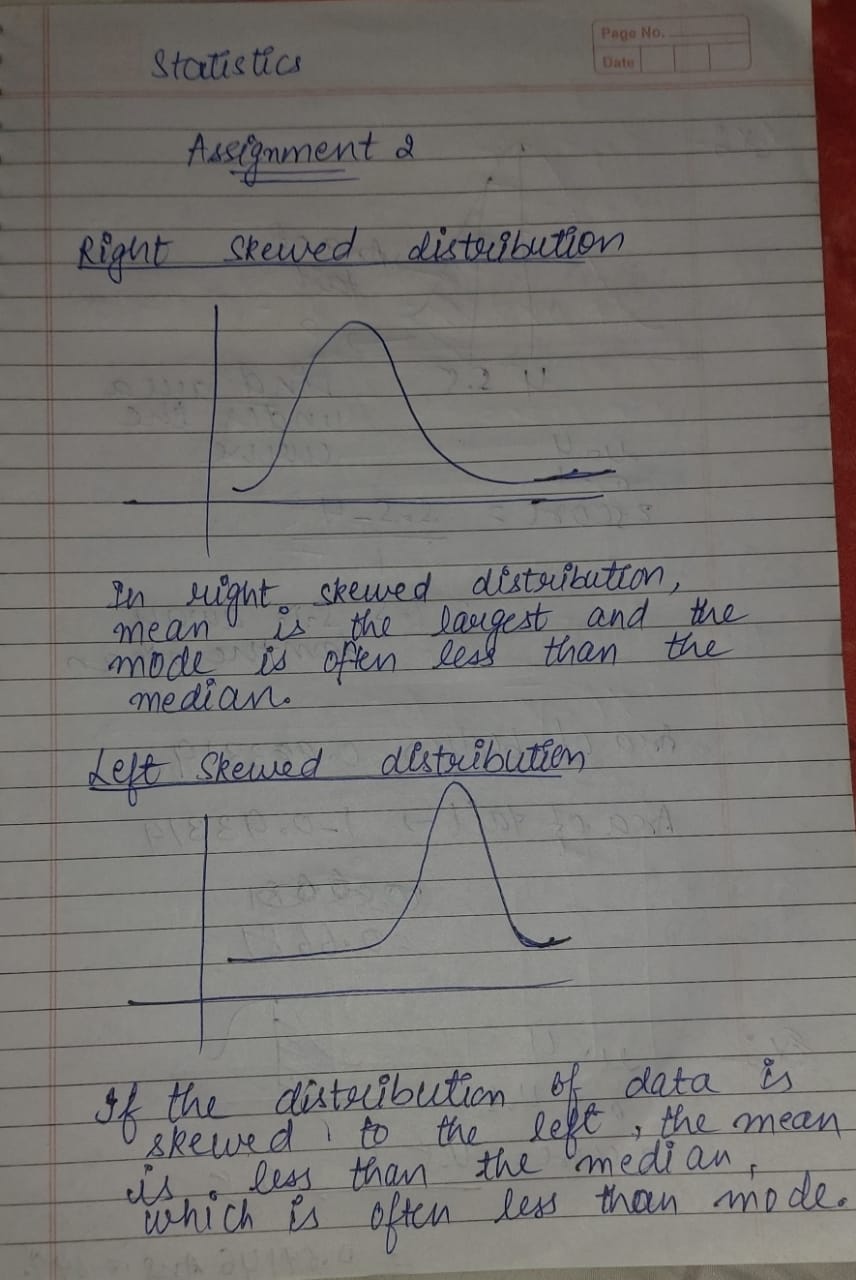 Page No.
Date
Statistics
Assignment 2
Right skewed distribution
In right skewed distribution,
mean is the largest and the
mode is often less than the
median.
Left skewed distribution
If the distribution of data is
skewed to the left, the mean
is less than the median,
which is often less than mode.